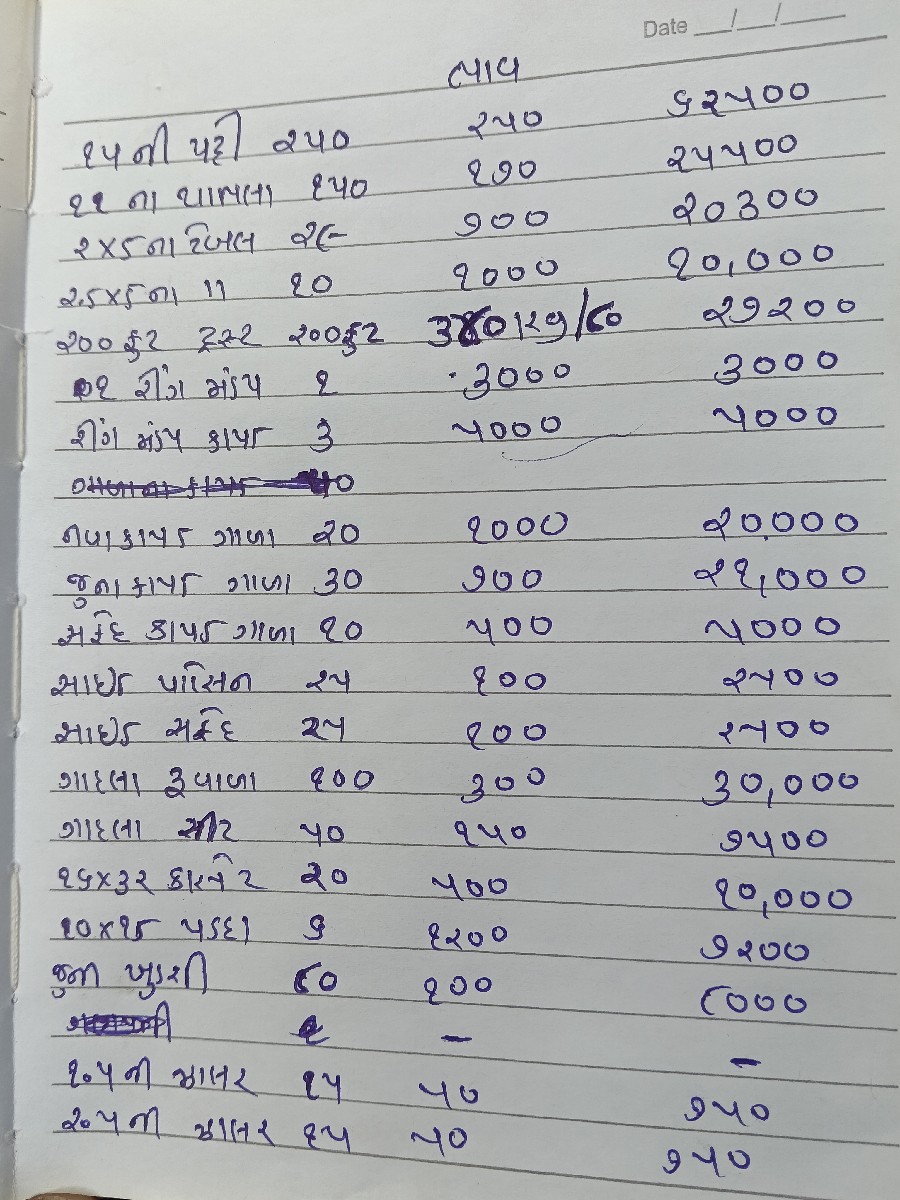 Date __/__/__
ભાવ
૧૫ની પટ્ટી ૨૫૦ ૨૫૦ ૬૨૫૦૦
૧૧ ના થાભલા ૧૫૦ ૧૭૦ ૨૫૫૦૦
૨×૬ના ટેબલ ૨૯ ૭૦૦ ૨૦૩૦૦
૨.૫×૬ના ૧૧ ૧૦ ૧૦૦૦ ૧૦,૦૦૦
૨૦૦ ફુટ ટ્રસ્ટ ૨૦૦ફુટ ૩૪૦kg/૮૦ ૨૭૨૦૦
૧ રીંગ મંડપ ૧ ૩૦૦૦ ૩૦૦૦
રીંગ મંડપ કાપડ ૩ ૫૦૦૦ ૫૦૦૦
નવા કાપડ ગાળા ૨૦ ૧૦૦૦ ૨૦,૦૦૦
જુના કાપડ ગાળા ૩૦ ૭૦૦ ૨૧,૦૦૦
સફેદ કાપડ ગાળા ૧૦ ૫૦૦ ૫૦૦૦
સાઈડ પાર્ટિસન ૨૫ ૧૦૦ ૨૫૦૦
સાઈડ સફેદ ૨૫ ૧૦૦ ૨૫૦૦
ગાદલા રૂવાળા ૧૦૦ ૩૦૦ ૩૦,૦૦૦
ગાદલા સીટ ૫૦ ૧૫૦ ૭૫૦૦
૧૬×૩૨ કારપેટ ૨૦ ૫૦૦ ૧૦,૦૦૦
૧૦×૧૮ પડદા ૬ ૧૨૦૦ ૭૨૦૦
જુની ખુરશી ૮૦ ૧૦૦ ૮૦૦૦
૧ – –
૧.૫ની ઝાલર ૧૫ ૫૦ ૭૫૦
૨.૫ની ઝાલર ૧૫ ૫૦ ૭૫૦